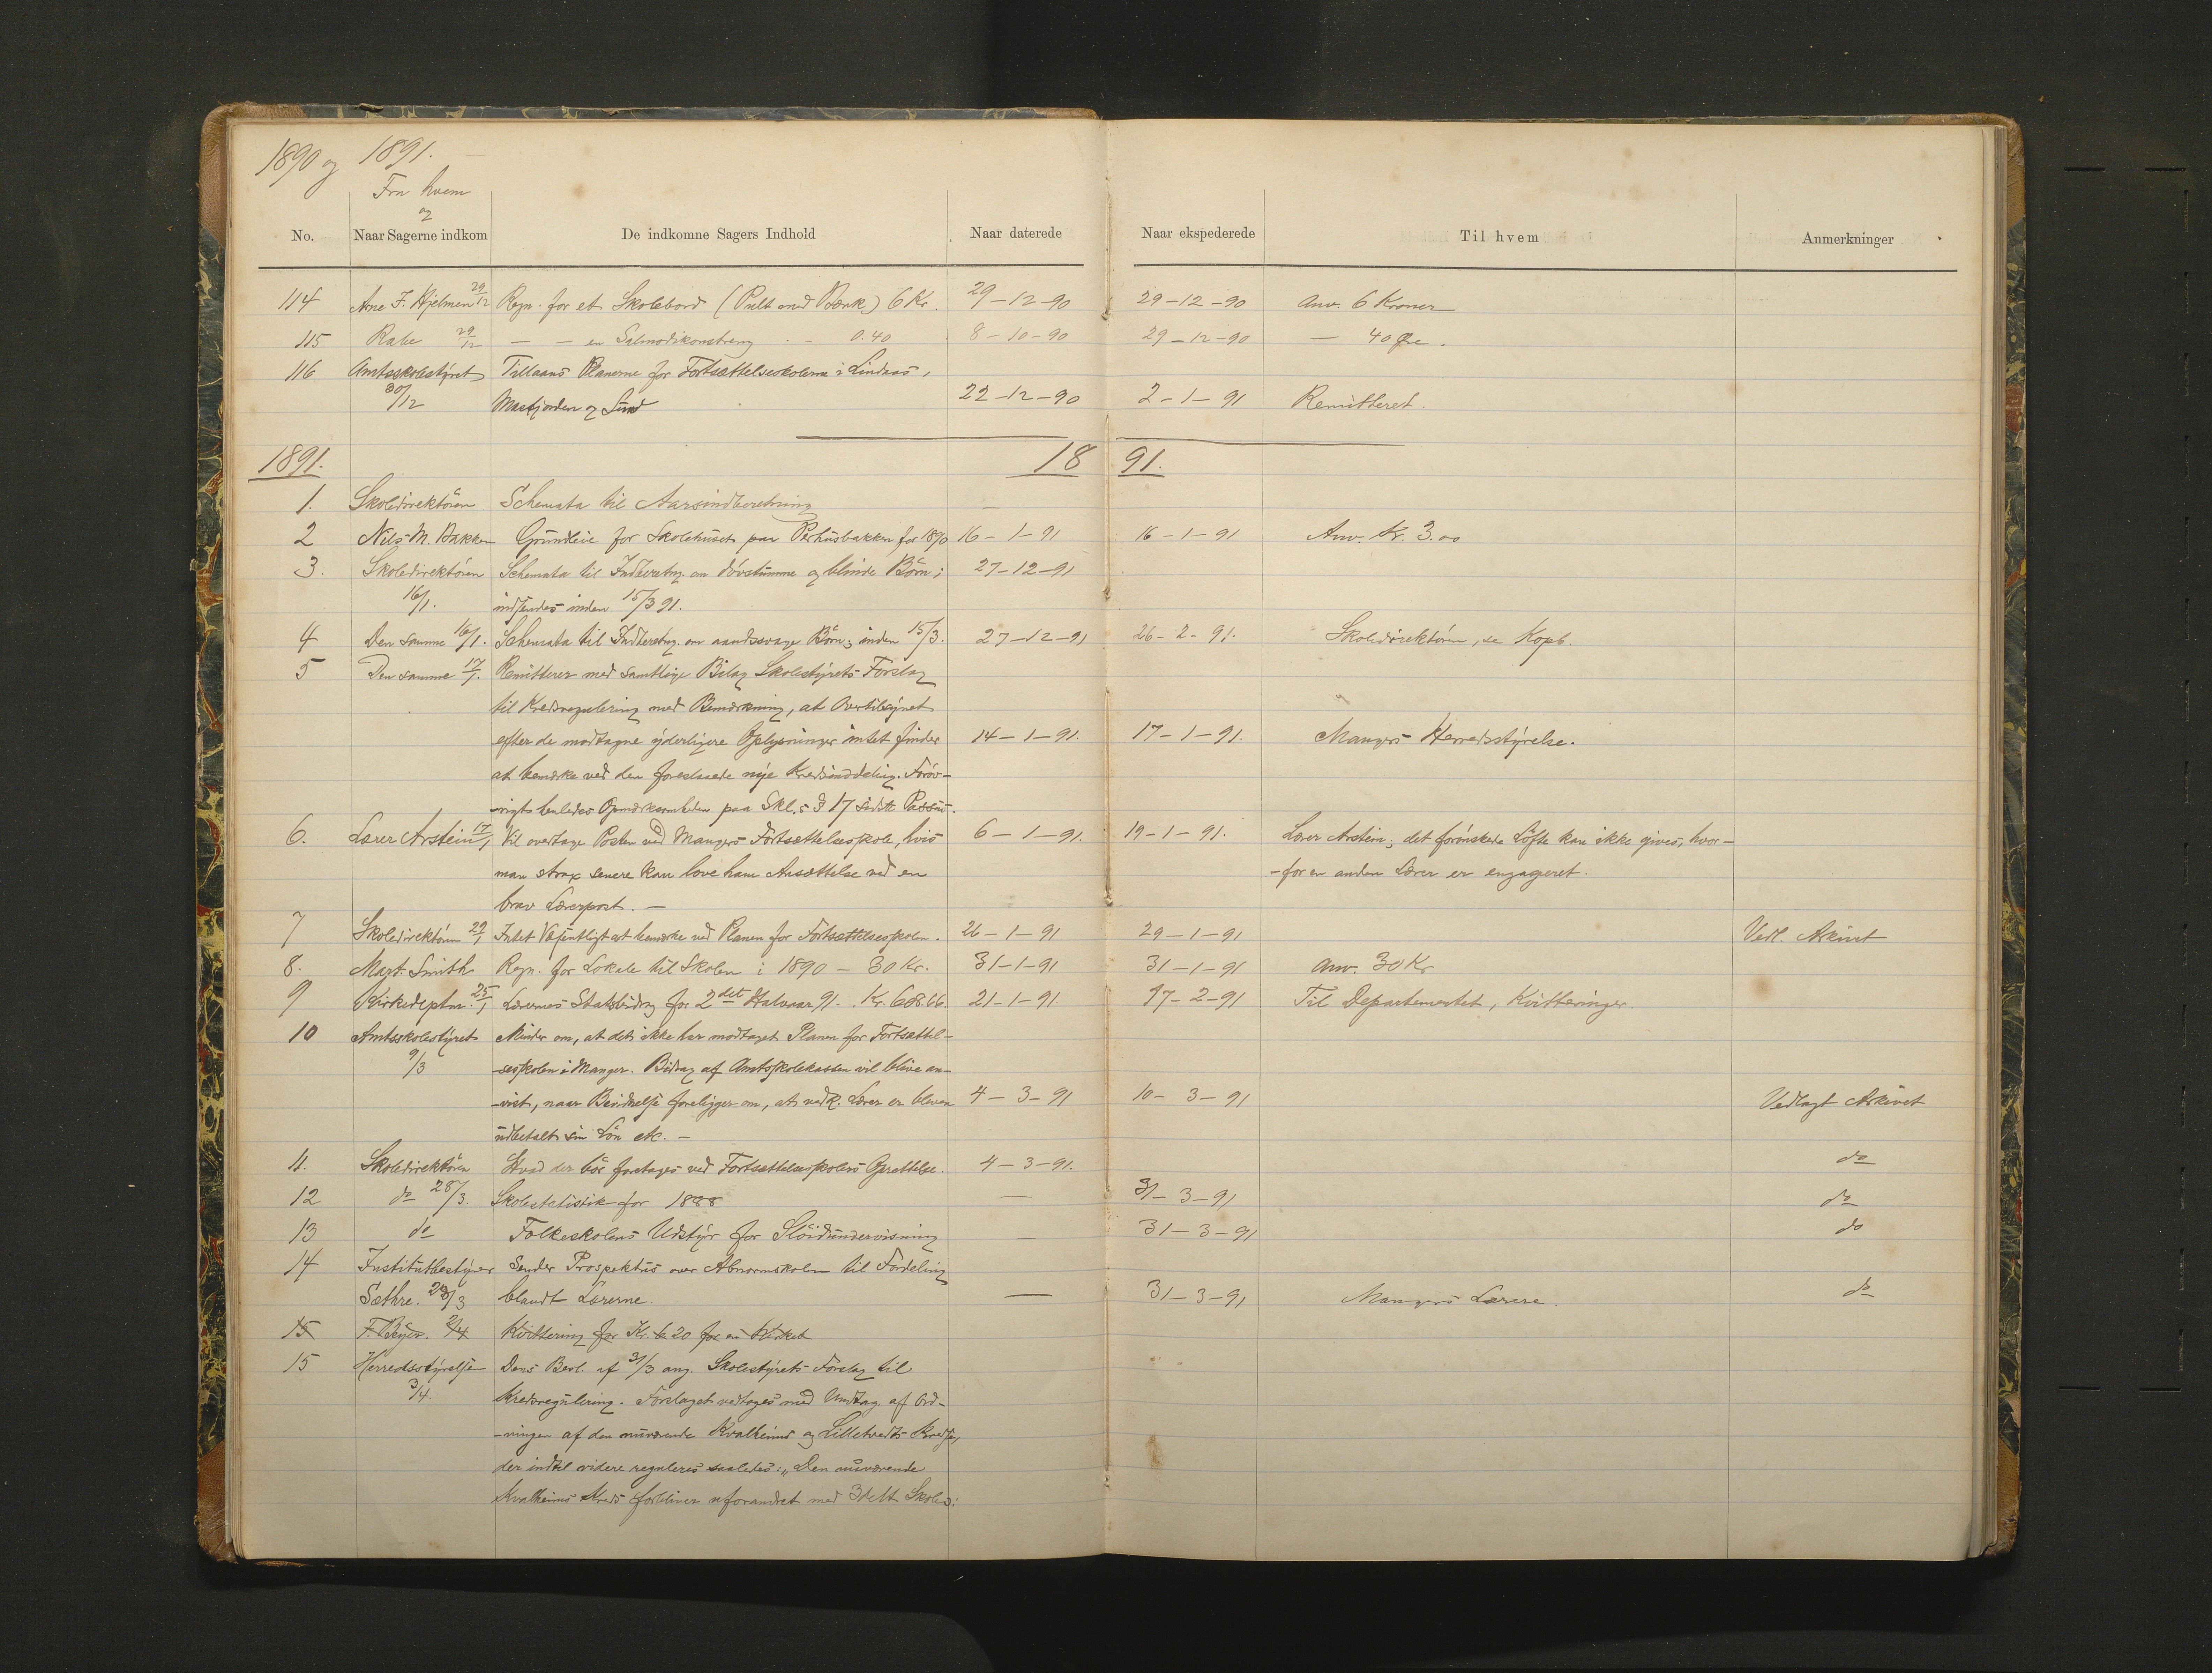 1890 og 1891.
Fra hvem
og
No. Naar Sagerne indkom De indkomne Sagers Indhold Naar daterede Naar ekspederede Til hvem Anmerkninger
114 Arne F. Hjelmen 29/12 Regn. for et Skolebord (Pult med Bænk) 6 Kr. 29-12-90 29-12-90 Anv. 6 Kroner
115 Rabe 29/12 — — en Salmodikonstreng - 0.40 8-10-90 29-12-90 — 40 Øre.
116 Amtsskolestyret Tillaans Planerne for Fortsættelseskolerne i Lindaas,
30/12 Masfjorden og Sund 22-12-90 2-1-91 Remitteret.
1891. 18 91.
1. Skoledirektören Schemata til Aarsindberetning —
2 Nils M. Bakken Grundleie for Skolehuset paa Perhusbakken for 1890 16-1-91 16-1-91 Anv. Kr. 3.00
3. Skoledirektören Schemata til Indberetng. om dövstumme og blinde Börn; 27-12-91
16/1. indsendes inden 15/3 91.
4 Den samme 16/1. Schemata til Indberetng. om aandssvage Börn; inden 15/3. 27-12-91 26-2-91. Skoledirektören, se Kopb.
5 Den samme 17/1. Remitterer med samtlige Bilag Skolestyrets Forslag
til Kredsregulering med Bemærkning, at Overtilsynet
efter de modtagne yderligere Oplysninger intet finder 14-1-91. 17-1-91. Mangers Herredsstyrelse.
at bemærke ved den foreslaaede nye Kredsinddeling. Foröv-
-rigt henledes Opmærksomheden paa Skl.s § 17 sidste Passus.
6. Lærer Arstein 17/1 Vil overtage Posten ved Mangers Fortsættelsesskole, hvis 6-1-91. 19-1-91. Lærer Arstein; det forönskede Löfte kan ikke gives, hvor-
man strax senere kan love ham Ansættelse ved en -for en anden Lærer er engageret.
brav Lærerpost. —
7 Skoledirektören 29/1 Intet Væsentligt at bemærke ved Planen for Fortsættelsesskolen. 26-1-91 29-1-91 Vedl. Arkivet
8. Mart. Smith Regn. for Lokale til Skolen i 1890 - 30 Kr. 31-1-91 31-1-91 Anv. 30 Kr
9 Kirkedeptm. 25/1 Lærernes Statsbidrag for 2det Halvaar 91. Kr. 608.66. 21-1-91 17-2-91 Til Departementet, Kvitteringer
10 Amtsskolestyret Minder om, at det ikke har modtaget Planen for Fortsættel-
9/3 -sesskolen i Manger. Bidrag af Amtsskolekassen vil blive an-
-vist, naar Bevidnelse foreligger om, at vedk. Lærer er bleven 4-3-91 10-3-91 Vedlagt Arkivet
udbetalt sin Lön etc. —
11. Skoledirektören Hvad der bör foretages ved Fortsættelsesskolers Oprettelse. 4-3-91. do
12 do 28/3. Skolestatistik for 1888 — 31-3-91 do
13 do Folkeskolens Udstyr for Slöidundervisning — 31-3-91 do
14 Institutbestyrer Sender Prospektus over Abnormskolen til Fordeling
Sæthre. 28/3 blandt Lærerne. — 31-3-91 Mangers Lærere. do
15 F. Beyer. 2/4 Kvittering for Kr. 6.20 for en
15 Herredsstyrelsen Dens Besl. af 31/3 ang. Skolestyrets Forslag til
3/4. Kredsregulering. Forslaget vedtages med Undtag. af Ord-
-ningen af den nuværende Kvalheims og Lilletvedts Kredse,
der indtil videre reguleres saaledes: „Den nuværende
Kvalheims Kreds forbliver uforandret med 3delt Skole: